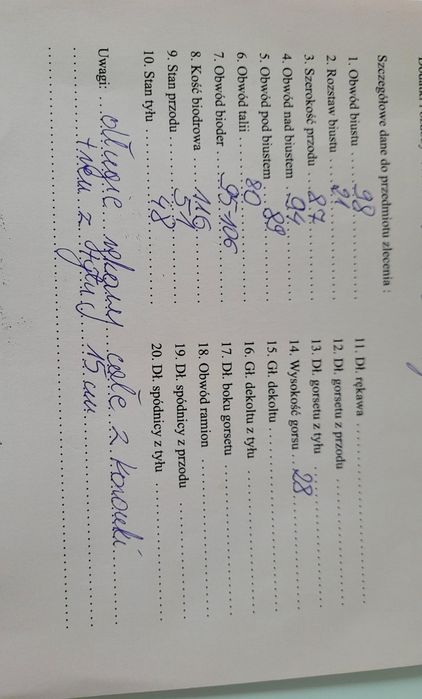 Szczegółowe dane do przedmiotu zlecenia :
1. Obwód biustu ....98............... 11. Dł. rękawa ...............................
2. Rozstaw biustu ....21............... 12. Dł. gorsetu z przodu ....................
3. Szerokość przodu ....87............. 13. Dł. gorsetu z tyłu .......................
4. Obwód nad biustem ..94............. 14. Wysokość gorsu ..28...................
5. Obwód pod biustem ...89............ 15. Gł. dekoltu ..............................
6. Obwód talii ....80.................. 16. Gł. dekoltu z tyłu .......................
7. Obwód bioder ...95-106.............. 17. Dł. boku gorsetu .......................
8. Kość biodrowa ...116............... 18. Obwód ramion ..........................
9. Stan przodu ......51............... 19. Dł. spódnicy z przodu ..................
10. Stan tyłu ........48............... 20. Dł. spódnicy z tyłu ....................
Uwagi: ...długie rękawy całe z koronki
z tyłu 15 cm